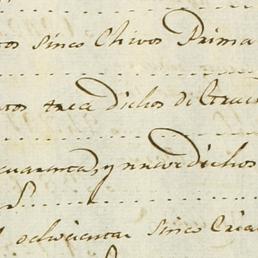 tos sinco Chivos Prima
tos trea Dichos di
cuarenta, y nueve dichos
ochocientas sinco Cria